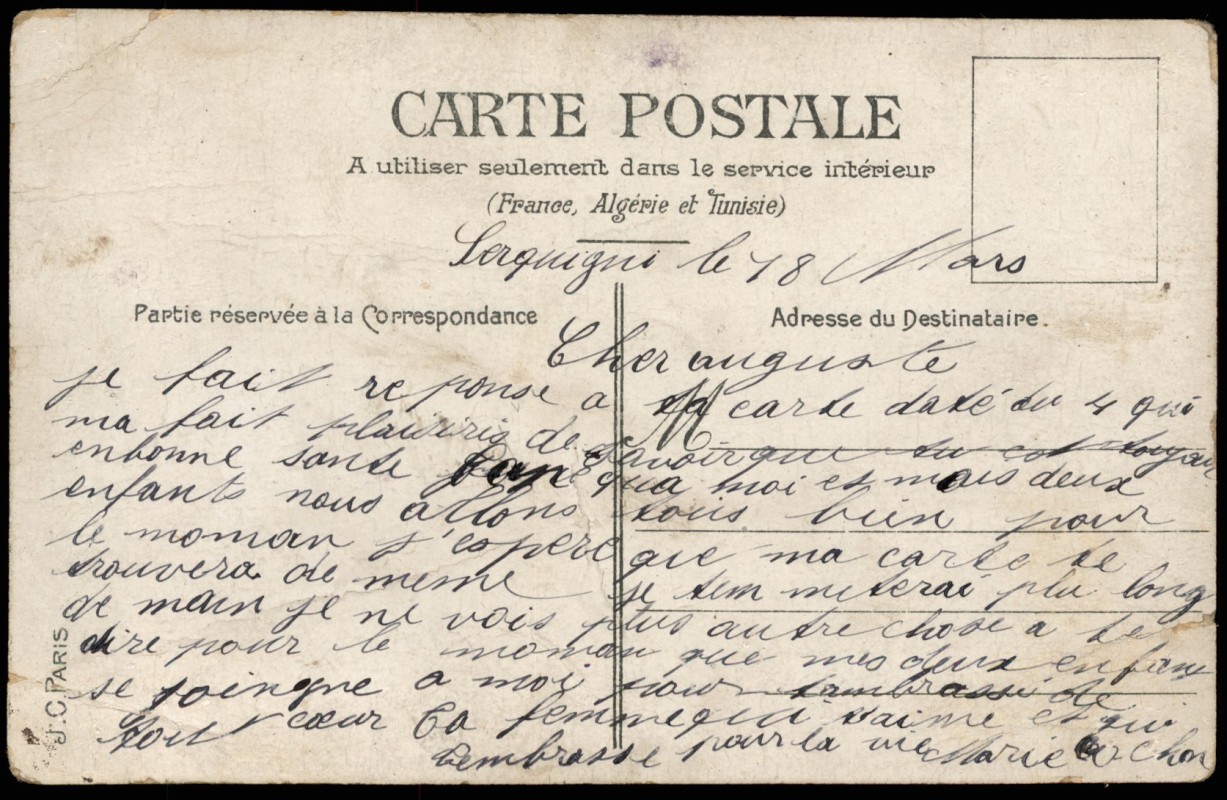 CARTE POSTALE
A utiliser seulement dans le service intérieur
(France, Algérie et Tunisie)
Serquigni le 18 Mars
Partie réservée à la Correspondance
Adresse du Destinataire.
Cher auguste
je fait reponse a ta carte daté du 4 qui
ma fait plaisiris de savoir que tu est toujour
enbonne sante qua moi et mais deux
enfants nous allons tous bien pour
le moman j'espere que ma carte te
trouvera de meme je tem meterai plu long
de main je ne vois plus autre chose a te
dire pour le moman que mes deux enfans
se joingne a moi pour tambrassé de
tout cœur ta femme qui t'aime et qui
tembrasse pour la vie Marie
J.C. PARIS